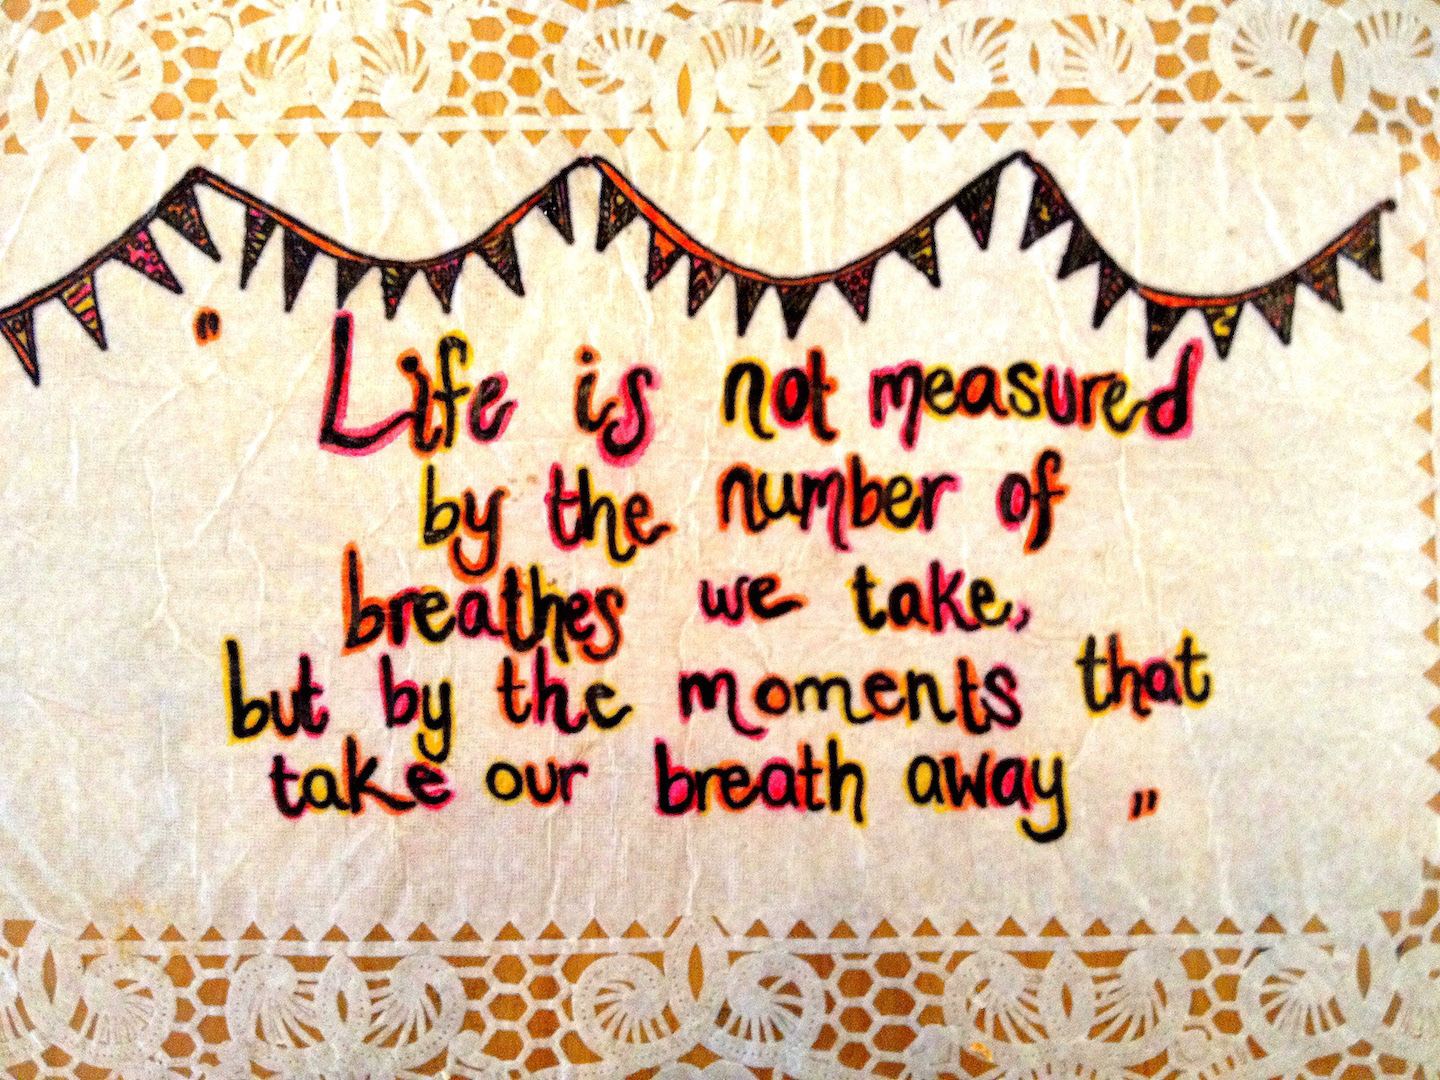 "Life is not measured
by the number of
breathes we take,
but by the moments that
take our breath away"